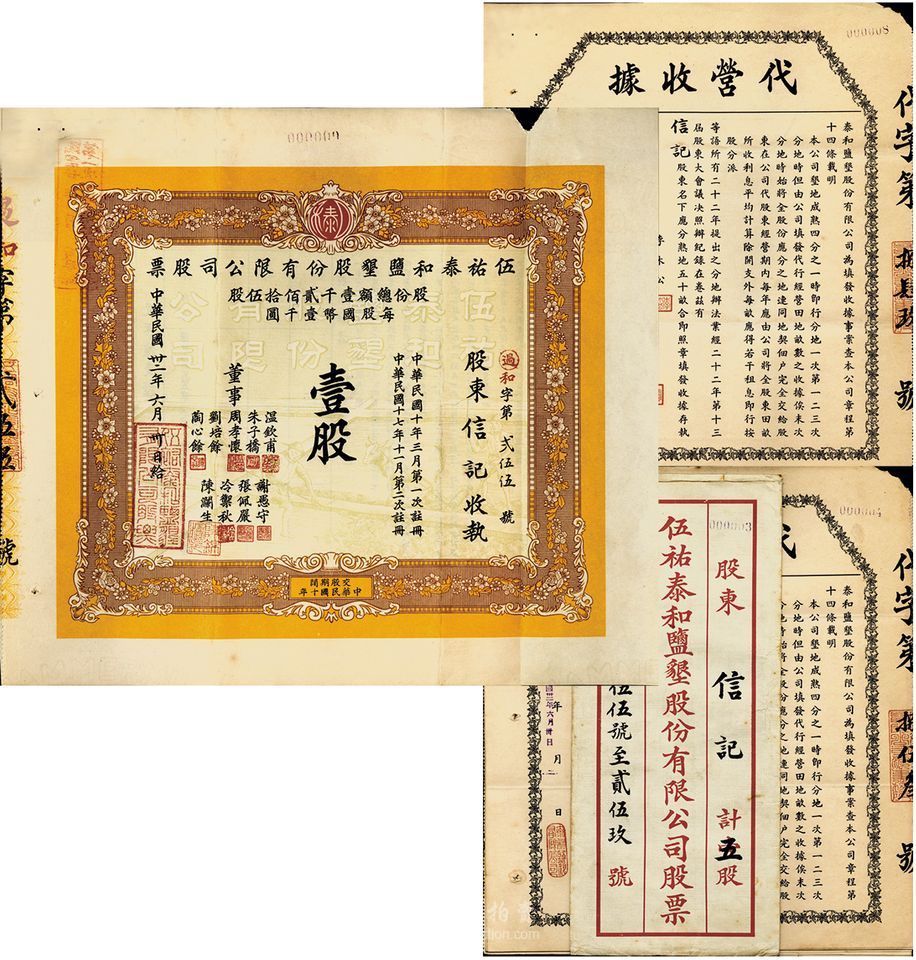 000009
伍祐泰和鹽墾股份有限公司股票
股份總額壹千貳佰拾伍股
每股國幣壹千圓
過和字第 弍伍伍 號
股東信記收執
中華民國十年三月第一次註冊
中華民國十七年十一月第二次註冊
壹股
董事
溫欽甫
朱子橋
周孝懷
劉培餘
陶心餘
謝惠守
張佩嚴
冷禦秋
陳瀾生
中華民國卅二年六月卅日給
交股期間
中華民國十年
號
000008
代營收據
泰和鹽墾股份有限公司為填發收據事業查本公司章程第
十四條載明
本公司墾地成熟四分之一時即行分地一次第一二三次
分地時但由公司填發代行經營田地畝數之收據俟末次
分地時始將全股份應分之地連同地契佃户完全交給股
東在公司代股東經營期內每年應由公司將全股東田畝
所收利息平均計算除開支外每畝應得若干租息即行按
股分派
等語所有二十二年提出之分地辦法業經二十二年第十三
屆股東大會議决照辦紀錄在卷茲有
信記股東名下應分熟地五十畝合即照章填發收據存執
代字第
號
000003
股東 信記 計五股
伍祐泰和鹽墾股份有限公司股票
伍伍號至貳伍玖號
000004
代
泰和鹽墾股份有限公司為填發收據事業查本公司章程第
十四條載明
本公司墾地成熟四分之一時即行分地一次第一二三次
分地時但由公司填發代行經營田地畝數之收據俟末次
分地時始將全股份應分之地連同地契佃户完全交給股
年 月 日
代字第
號